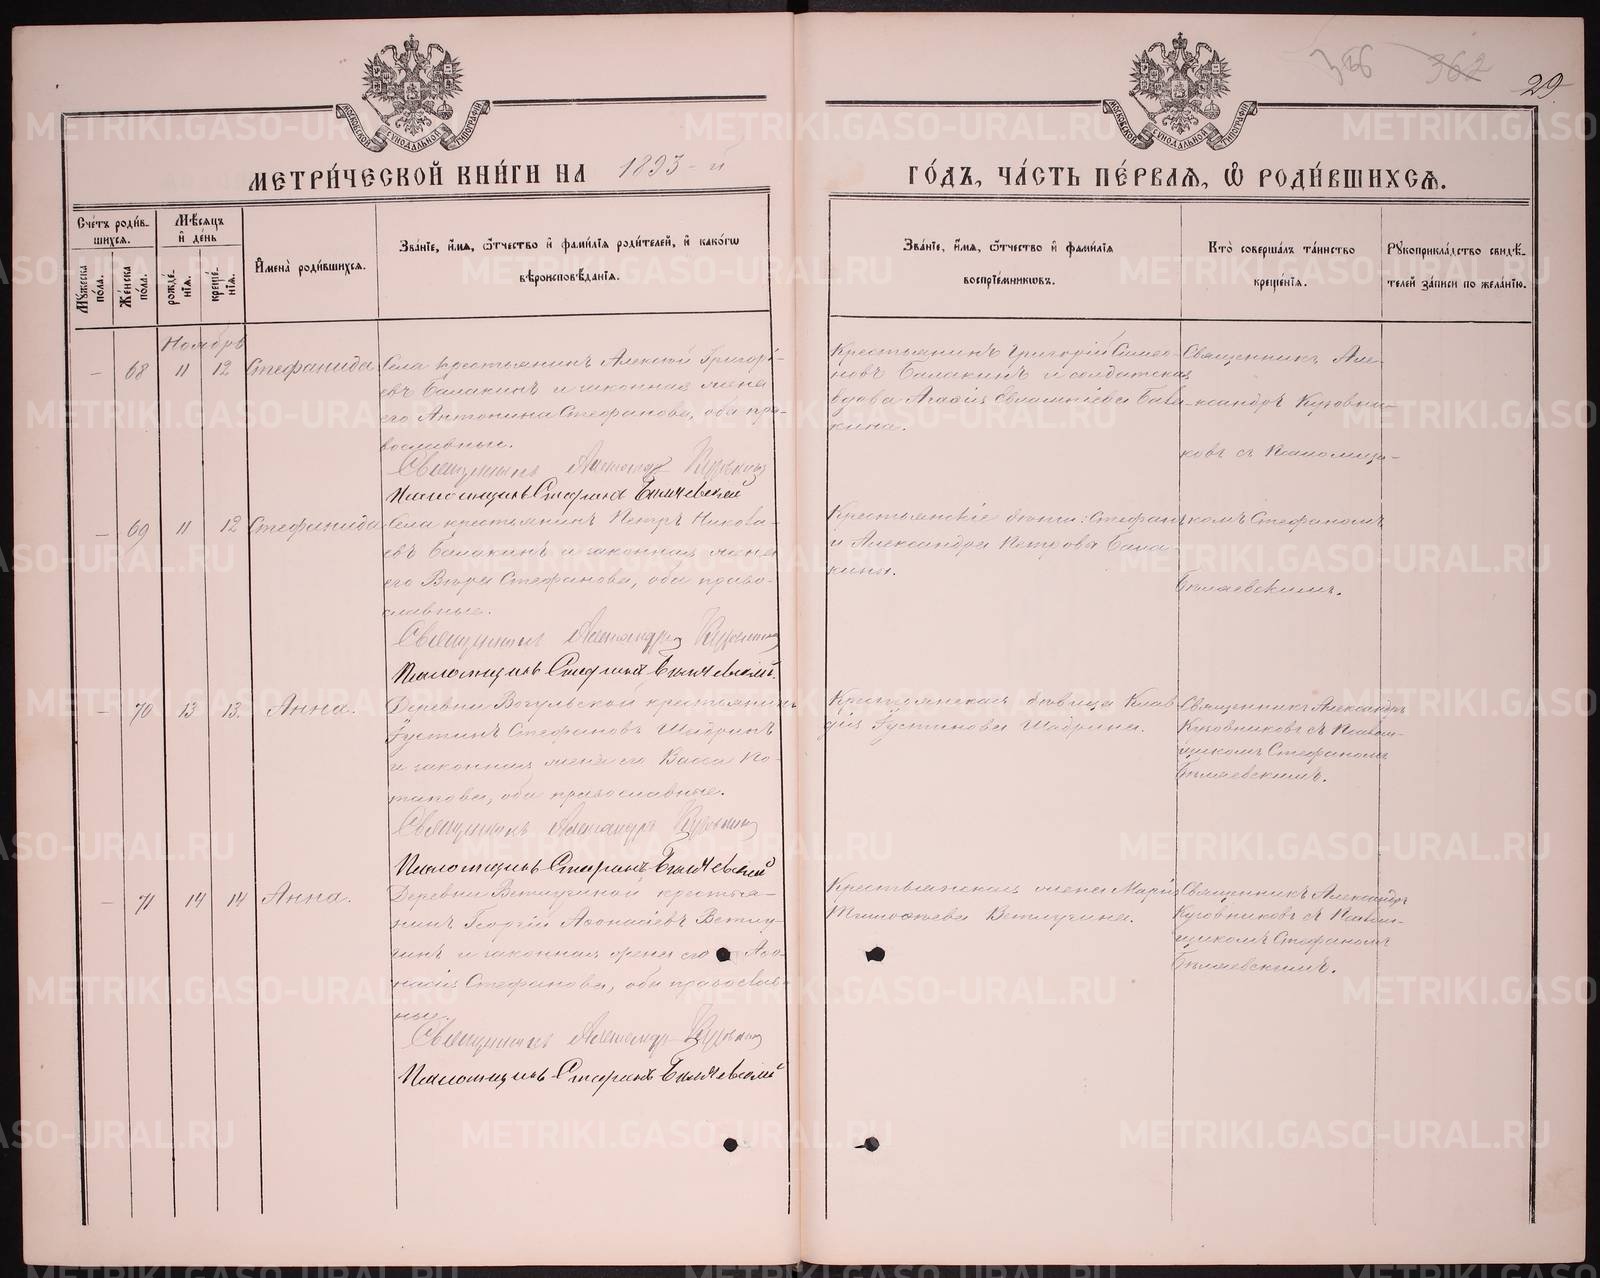 326 362 29.
МОСКОВСКОЙ СѴНОДАЛЬНОЙ ТИПОГРАФІИ
МОСКОВСКОЙ СѴНОДАЛЬНОЙ ТИПОГРАФІИ
МЕТРИ́ЧЕСКОЙ КНИ́ГИ НА 1893-й
ГО́ДЪ, ЧА́СТЬ ПЕ́РВАЯ, Ѡ РОДИ́ВШИХСЯ.
Сче́тъ роди́в-
шихся.
Му́жеска по́ла.
Же́нска по́ла.
Мѣ́сяцъ
и́ де́нь
рожде́-
нія.
креще́-
нія.
Имена̀ роди́вшихся.
Зва́ніе, и́мя, ѻ́тчество и́ фами́лія роди́телей, и́ како́гѡ
вѣроисповѣ́данія.
Зва́ніе, и́мя, ѻ́тчество и́ фами́лія
воспріе́мникѡвъ.
Кто̀ соверша́лъ та́инство
креще́нія.
Рꙋкоприкла́дство свидѣ́-
телей за́писи по жела́нію.
Ноябрь
– 68 11 12 Стефанида
Села крестьянинъ Алексѣй Григорі-
евъ Балакинъ и законная жена
его Антонина Стефанова, оба пра-
вославные.
Священникъ Александръ Куровниковъ
Псаломщикъ Стефанъ Бѣляевскій
Крестьянинъ Григорій Симео-
новъ Балакинъ и солдатская
вдова Агафія Евлампіева Бала-
кина.
Священникъ Але-
ксандръ Куровни-
ковъ съ Псаломщи-
– 69 11 12 Стефанида
Села крестьянинъ Петръ Никола-
евъ Балакинъ и законная жена
его Вѣра Стефанова, оба право-
славные.
Священникъ Александръ Куровниковъ
Псаломщикъ Стефанъ Бѣляевскій.
Крестьянскіе дѣти: Стефанъ
и Александра Петровы Бала-
кины.
комъ Стефаномъ
Бѣляевскимъ.
– 70 13 13. Анна.
Деревни Вогульской крестьянинъ
Іустинъ Стефановъ Шадринъ
и законная жена его Васса По-
тапова, оба православные.
Священникъ Александръ Куровниковъ
Псаломщикъ Стефанъ Бѣляевскій
Крестьянская дѣвица Клав-
дія Іустинова Шадрина.
Священникъ Александръ
Куровниковъ съ Псалом-
щикомъ Стефаномъ
Бѣляевскимъ.
– 71 14 14 Анна.
Деревни Ветлугиной крестья-
нинъ Георгій Аѳонасіевъ Ветлу-
гинъ и законная жена его Аѳа-
насія Стефанова, оба православ-
ные.
Священникъ Александръ Куровниковъ
Псаломщикъ Стефанъ Бѣляевскій
Крестьянская жена Марія
Тимоѳеева Ветлугина.
Священникъ Александръ
Куровниковъ съ Псалом-
щикомъ Стефаномъ
Бѣляевскимъ.
METRIKI.GASO-URAL.RU